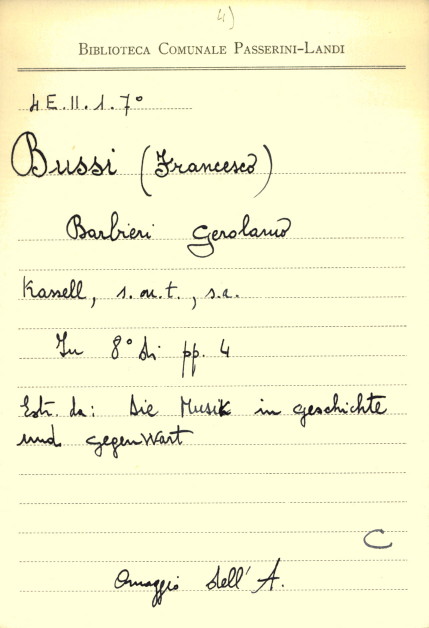 4)
BIBLIOTECA COMUNALE PASSERINI-LANDI
4 E.II.1.7°
Bussi (Francesco)
Barbieri Gerolamo
Kassell, s.n.t., s.a.
In 8° di pp. 4
Estr. da: Die Musik in geschichte
und gegenWart
C
Omaggio dell'A.